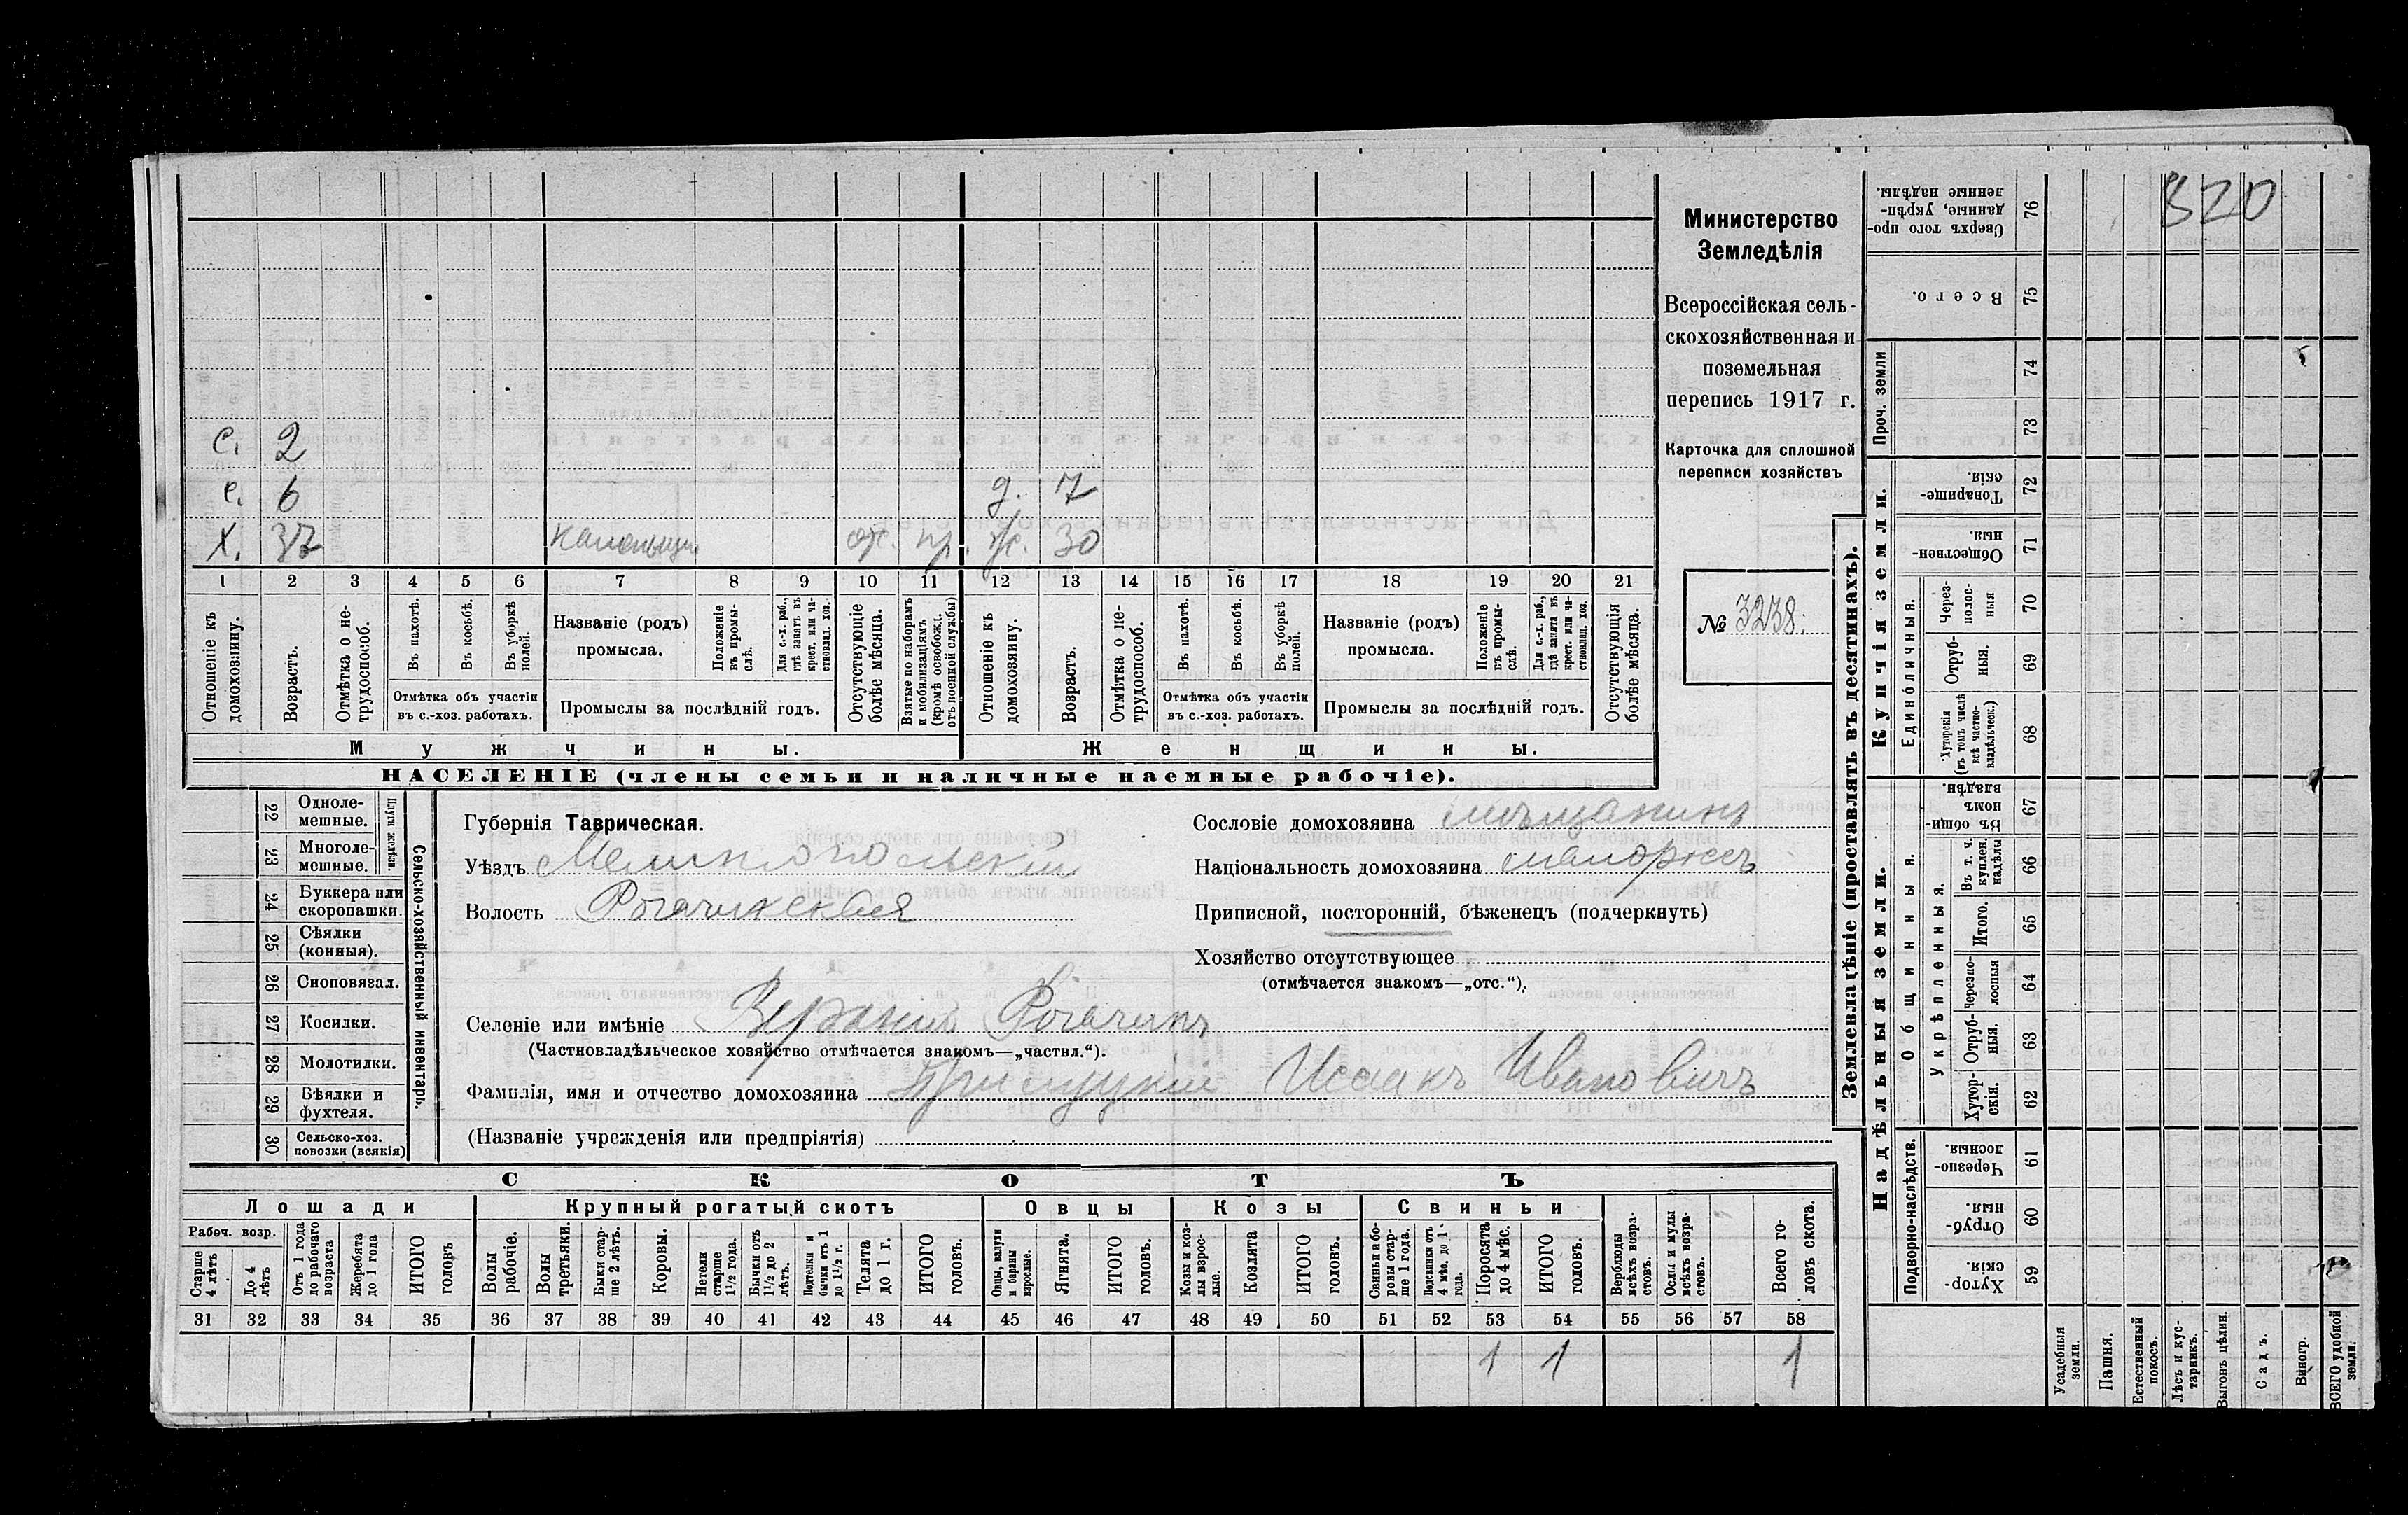 820
Министерство
Земледѣлія
Всероссійская сель-
скохозяйственная и
поземельная
перепись 1917 г.
Карточка для сплошной
переписи хозяйствъ
№ 3238.
с. 2
с. 6 д. 7
х. 37 от. ж. 30
1 2 3 4 5 6 7 8 9 10 11 12 13 14 15 16 17 18 19 20 21
Отношеніе къ домохозяину.
Возрастъ.
Отмѣтка о не-трудоспособ.
Въ пахотѣ.
Въ косьбѣ.
Въ уборкѣ полей.
Отмѣтка объ участіи
въ с.-хоз. работахъ.
Названіе (родъ)
промысла.
Положеніе въ промы-слѣ.
Для с.-х. раб., гдѣ занятъ въ крест. или ча-стновлад. хоз.
Промыслы за послѣдній годъ.
Отсутствующіе болѣе мѣсяца.
Взятые по наборамъ и мобилизаціямъ (кромѣ освобожд. отъ военной службы)
Отношеніе къ домохозяину.
Возрастъ.
Отмѣтка о не-трудоспособ.
Въ пахотѣ.
Въ косьбѣ.
Въ уборкѣ полей.
Отмѣтка объ участіи
въ с.-хоз. работахъ.
Названіе (родъ)
промысла.
Положеніе въ промы-слѣ.
Для с.-х. раб., гдѣ занята въ крест. или ча-стновлад. хоз.
Промыслы за послѣдній годъ.
Отсутствующія болѣе мѣсяца.
Мужчины. Женщины.
НАСЕЛЕНІЕ (члены семьи и наличные наемные рабочіе).
22 Одноле-мешные.
23 Многоле-мешные.
Плуги желѣзн.
24 Буккера или скоропашки.
25 Сѣялки (конныя).
26 Сноповязал.
27 Косилки.
28 Молотилки.
29 Вѣялки и фухтеля.
30 Сельско-хоз. повозки (всякія)
Сельско-хозяйственный инвентарь.
Губернія Таврическая.
Уѣздъ Мелитопольскій
Волость Рогачикская
Сословіе домохозяина мѣщанинъ
Національность домохозяина малороссъ
Приписной, посторонній, бѣженецъ (подчеркнуть)
Хозяйство отсутствующее
(отмѣчается знакомъ—„отс.“).
Селеніе или имѣніе Верхній Рогачикъ
(Частновладѣльческое хозяйство отмѣчается знакомъ—„частвл.“).
Фамилія, имя и отчество домохозяина Прилуцкій Исаакъ Ивановичъ
(Названіе учрежденія или предпріятія)
СКОТЪ
Лошади Крупный рогатый скотъ Овцы Козы Свиньи
Рабоч. возр.
Старше 4 лѣтъ
До 4 лѣтъ
Отъ 1 года до рабочаго возраста
Жеребята до 1 года
ИТОГО головъ
Волы рабочіе.
Волы третьяки.
Быки стар-ше 2 лѣтъ.
Коровы.
Нетели старше 1½ года.
Бычки отъ 1½ до 2 лѣтъ.
Подтелки и бычки отъ 1 до 1½ г.
Телята до 1 г.
ИТОГО головъ.
Овцы, валухи и бараны взрослые.
Ягнята.
ИТОГО головъ.
Козы и коз-лы взрос-лые.
Козлята
ИТОГО головъ.
Свиньи и бо-ровы стар-ше 1 года.
Подсвинки отъ 4 мѣс. до 1 года.
Поросята до 4 мѣс.
ИТОГО головъ.
Верблюды всѣхъ возра-стовъ.
Ослы и мулы всѣхъ возра-стовъ.
Всего го-ловъ скота.
31 32 33 34 35 36 37 38 39 40 41 42 43 44 45 46 47 48 49 50 51 52 53 54 55 56 57 58
1 1 1
Землевладѣніе (проставлять въ десятинахъ).
Надѣльныя земли. Купчія земли. Проч. земли
Подворно-наслѣдств.
Общинныя.
Укрѣпленныя.
Единоличныя.
Хутор-скія. 59
Отруб-ныя. 60
Черезпо-лосныя 61
Хутор-скія. 62
Отруб-ныя. 63
Черезпо-лосныя 64
Итого. 65
Въ т. ч. куплен. надѣлы 66
Въ общин-номъ владѣн. 67
Хуторскія (въ томъ числѣ всѣ частно-владѣльческ.) 68
Отруб-ныя. 69
Через-полос-ныя 70
Обществен-ныя. 71
Товарище-скія. 72
73
74
Всего. 75
Сверхъ того про-данные, укрѣп-ленные надѣлы. 76
Усадебныя земли.
Пашня.
Естественный покосъ.
Лѣсъ и кус-тарникъ.
Выгонъ цѣлин.
Садъ.
Виногр.
ВСЕГО удобной земли.